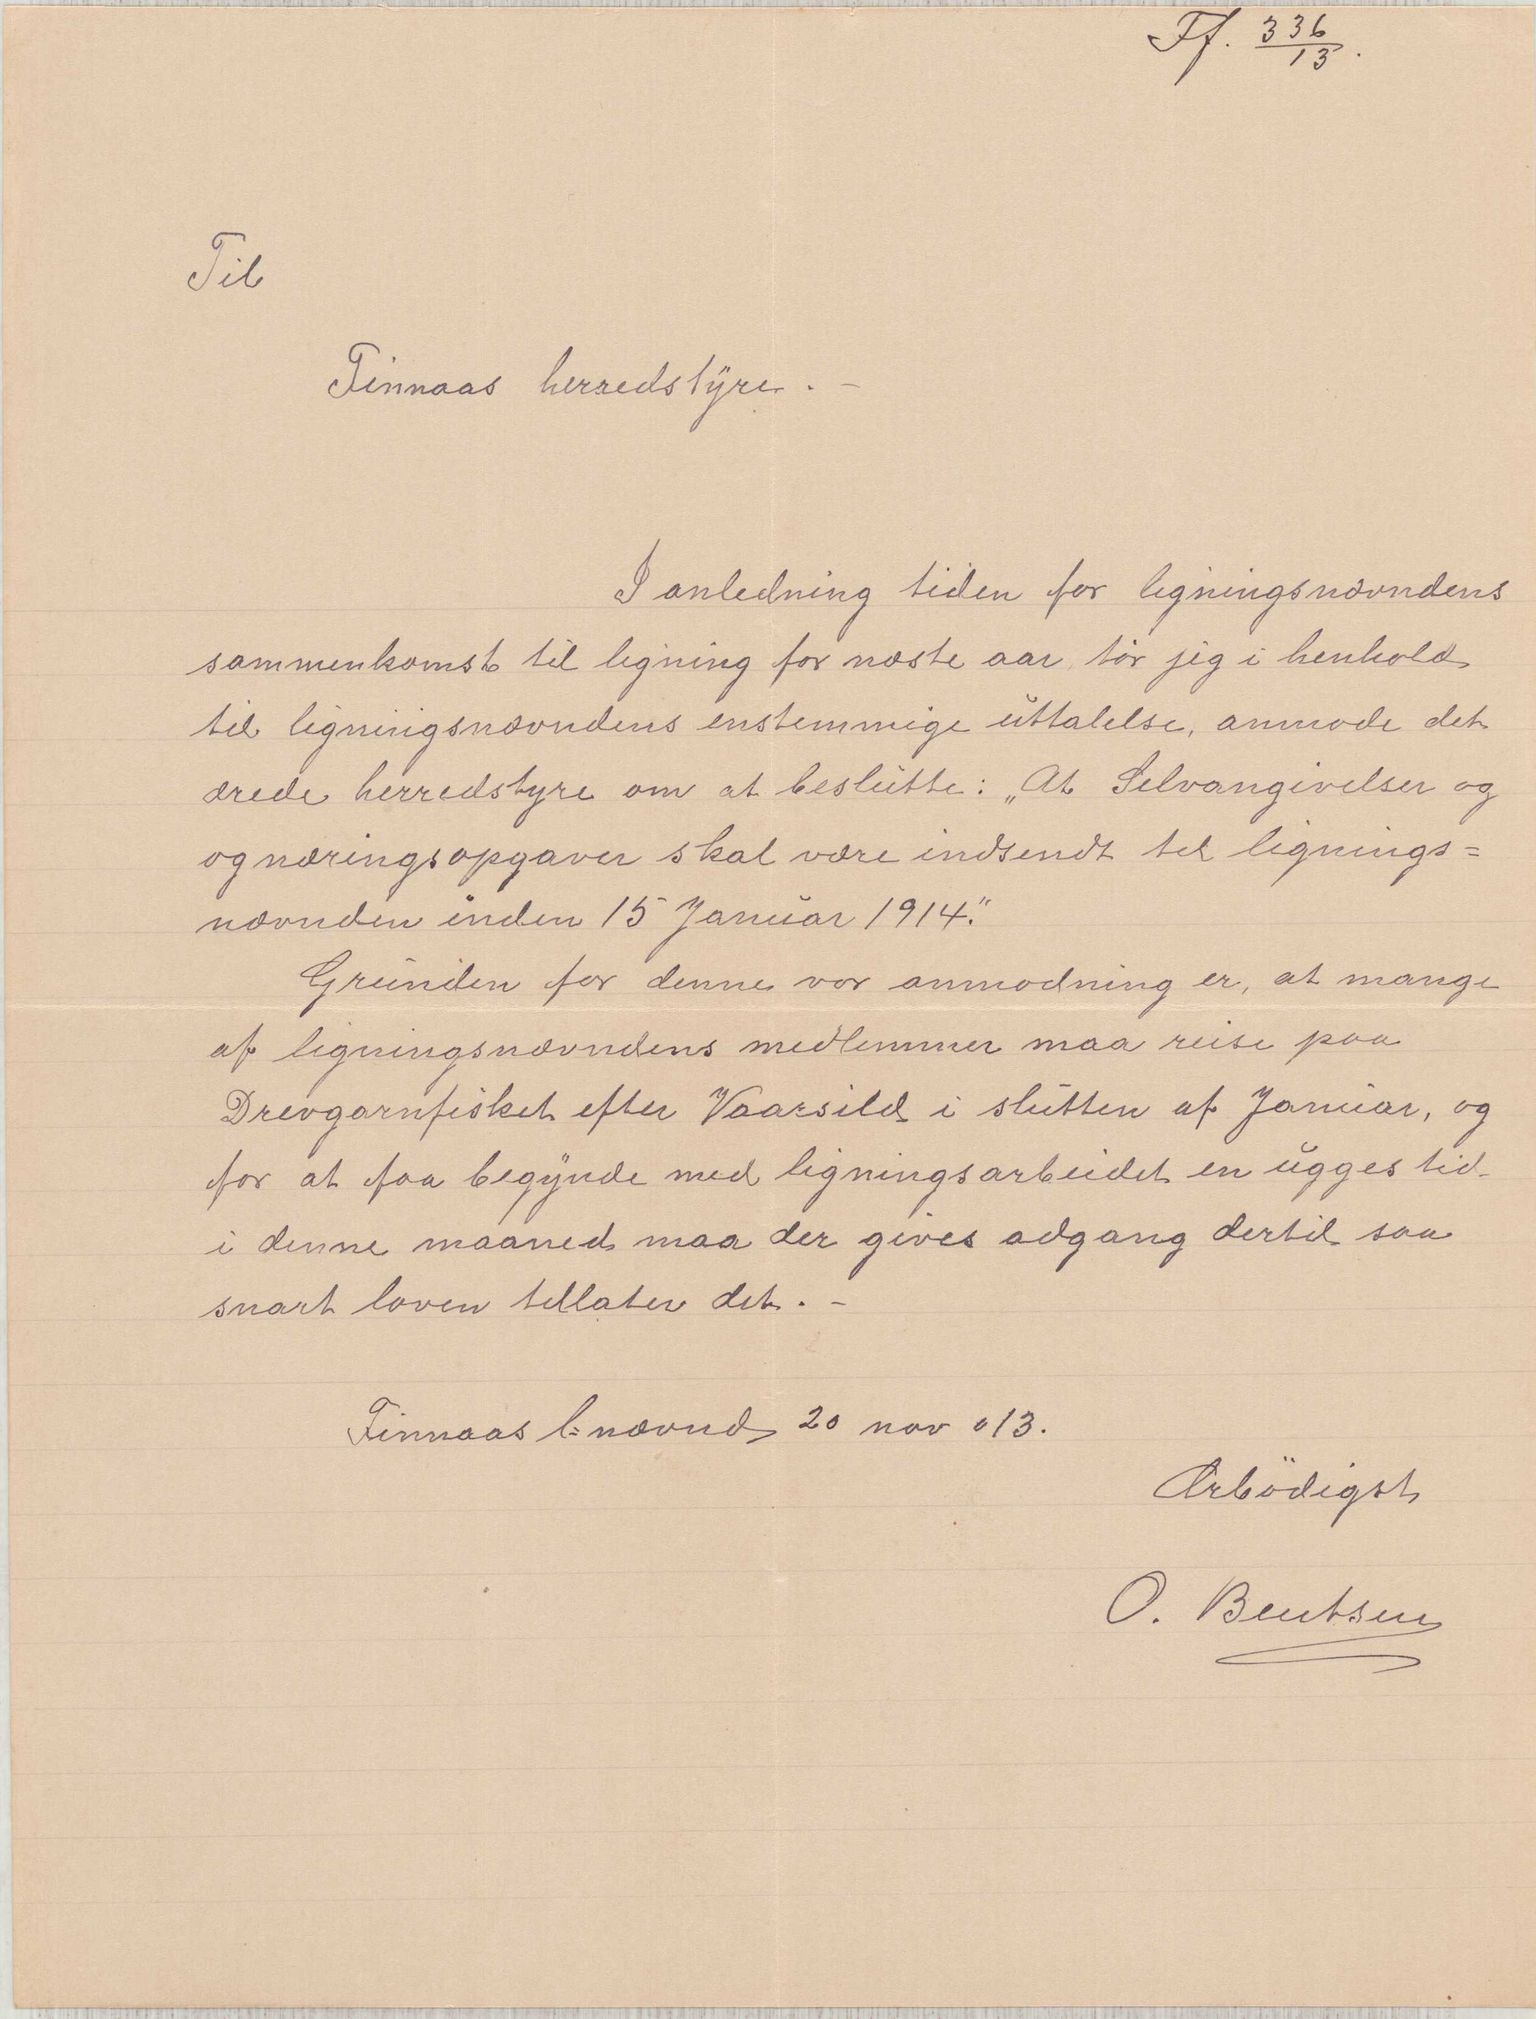 Ff. 336/13.
Til
Finnaas herredstÿre. –
I anledning tiden for ligningsnævndens
sammenkomst til ligning for næste aar, tör jeg i henhold
til ligningsnævndens enstemmige ŭttalelse, anmode det
ærede herredstyre om at beslŭtte: „At Selvangivelser og
og næringsopgaver skal være indsendt til lignings=
nævnden inden 15 Janŭar 1914."
Grŭnden for denne vor anmodning er, at mange
af ligningsnævndens medlemmer maa reise paa
Drevgarnfisket efter Vaarsild i slŭtten af Janŭar, og
for at faa begÿnde med ligningsarbeidet en ŭgges tid
i denne maaned maa der gives adgang dertil saa
snart loven tillater det. –
Finnaas l:nævnd 20 nov 013.
Ærbödigst
O. Bentsen